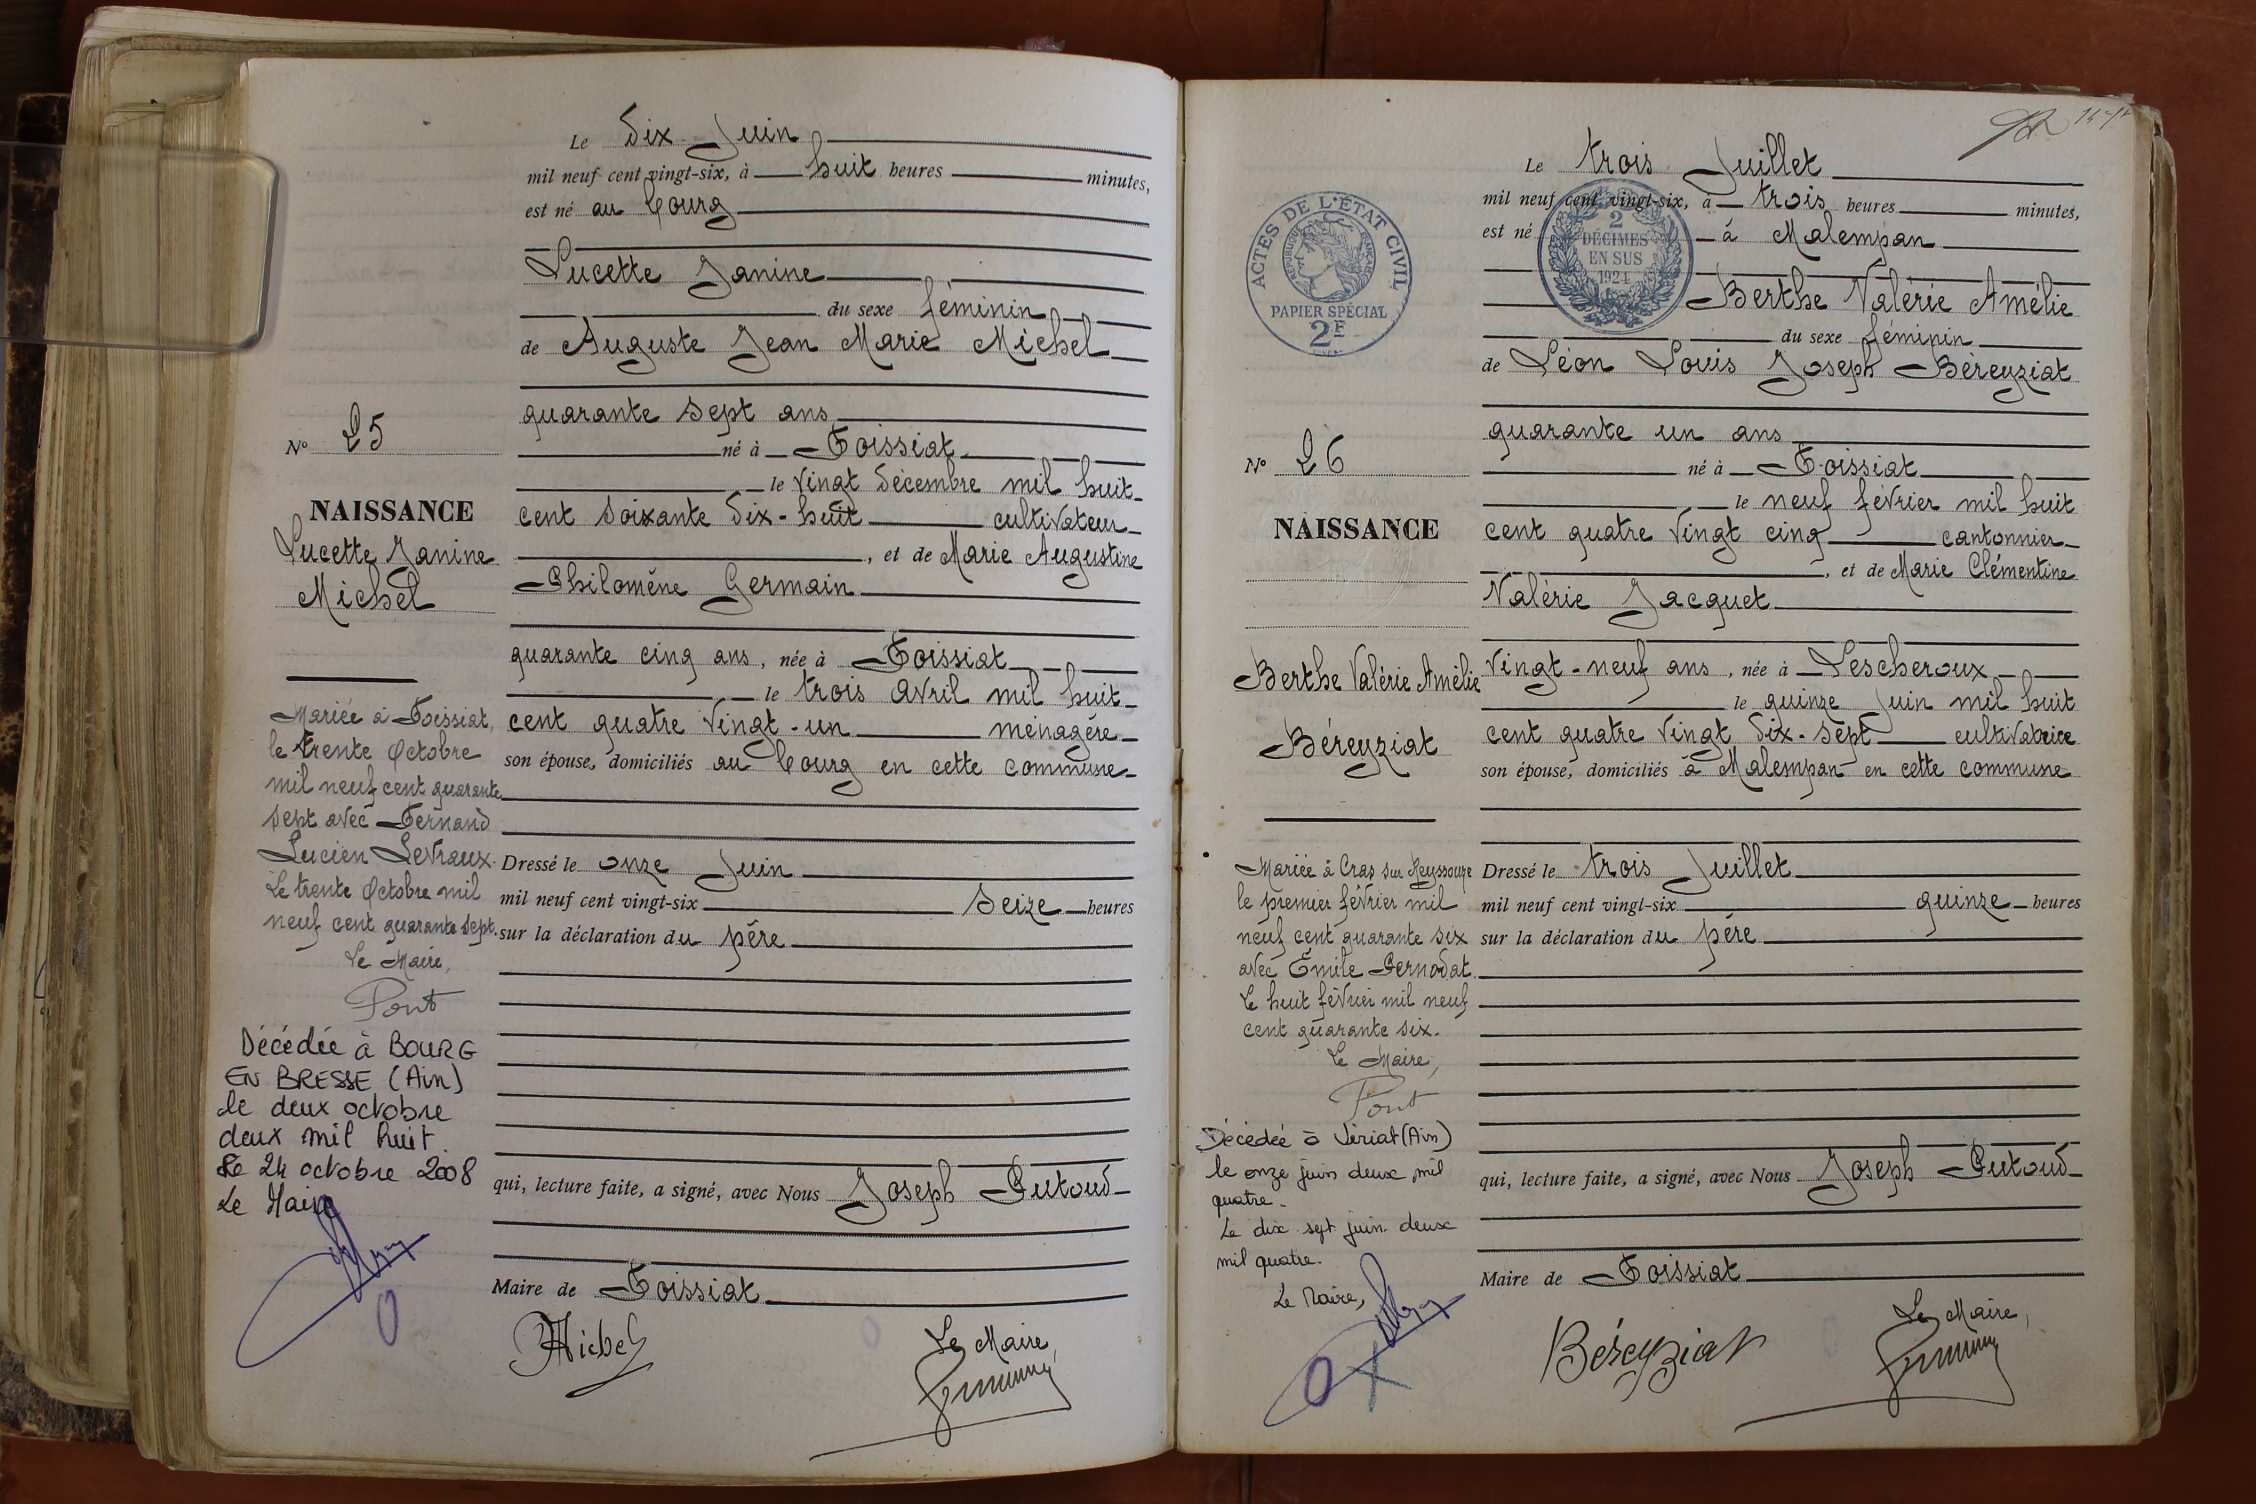 Le Dix Juin
mil neuf cent vingt-six, à huit heures minutes,
est né au bourg
Lucette Janine
du sexe féminin
de Auguste Jean Marie Michel
quarante sept ans
né à Foissiat
le vingt décembre mil huit
cent soixante dix-huit cultivateur
, et de Marie Augustine
Philomène Germain
quarante cinq ans, née à Foissiat
le trois avril mil huit
cent quatre vingt-un ménagère
son épouse, domiciliés au bourg en cette commune
Dressé le onze Juin
mil neuf cent vingt-six seize heures
sur la déclaration du père
qui, lecture faite, a signé, avec Nous Joseph Putoud
Maire de Foissiat
Michel
Le Maire,
No 25
NAISSANCE
Lucette Janine
Michel
Mariée à Foissiat,
le trente Octobre
mil neuf cent quarante
sept avec Fernand
Lucien Levraux.
Le trente Octobre mil
neuf cent quarante sept.
Le Maire,
Pont
Décédée à BOURG
EN BRESSE (Ain)
le deux octobre
deux mil huit
Le 24 octobre 2008
Le Maire
Le trois Juillet
mil neuf cent vingt-six, à trois heures minutes,
est né à Malempan
Berthe Valérie Amélie
du sexe féminin
de Léon Louis Joseph Béreyziat
quarante un ans
né à Foissiat
le neuf février mil huit
cent quatre vingt cinq cantonnier
, et de Marie Clémentine
Valérie Jacquet
vingt-neuf ans, née à Lescheroux
le quinze Juin mil huit
cent quatre vingt dix-sept cultivatrice
son épouse, domiciliés à Malempan en cette commune
Dressé le trois Juillet
mil neuf cent vingt-six quinze heures
sur la déclaration du père
qui, lecture faite, a signé, avec Nous Joseph Putoud
Maire de Foissiat
Béreyziat
Le Maire,
ACTES DE L'ÉTAT CIVIL
RÉPUBLIQUE FRANÇAISE
PAPIER SPÉCIAL
2F
2
DÉCIMES
EN SUS
1924
No 26
NAISSANCE
Berthe Valérie Amélie
Béreyziat
Mariée à Cras sur Reyssouze
le premier février mil
neuf cent quarante six
avec Émile Pernodat.
Le huit février mil neuf
cent quarante six.
Le Maire,
Pont
Décédée à Viriat (Ain)
le onze juin deux mil
quatre.
Le dix sept juin deux
mil quatre.
Le Maire,